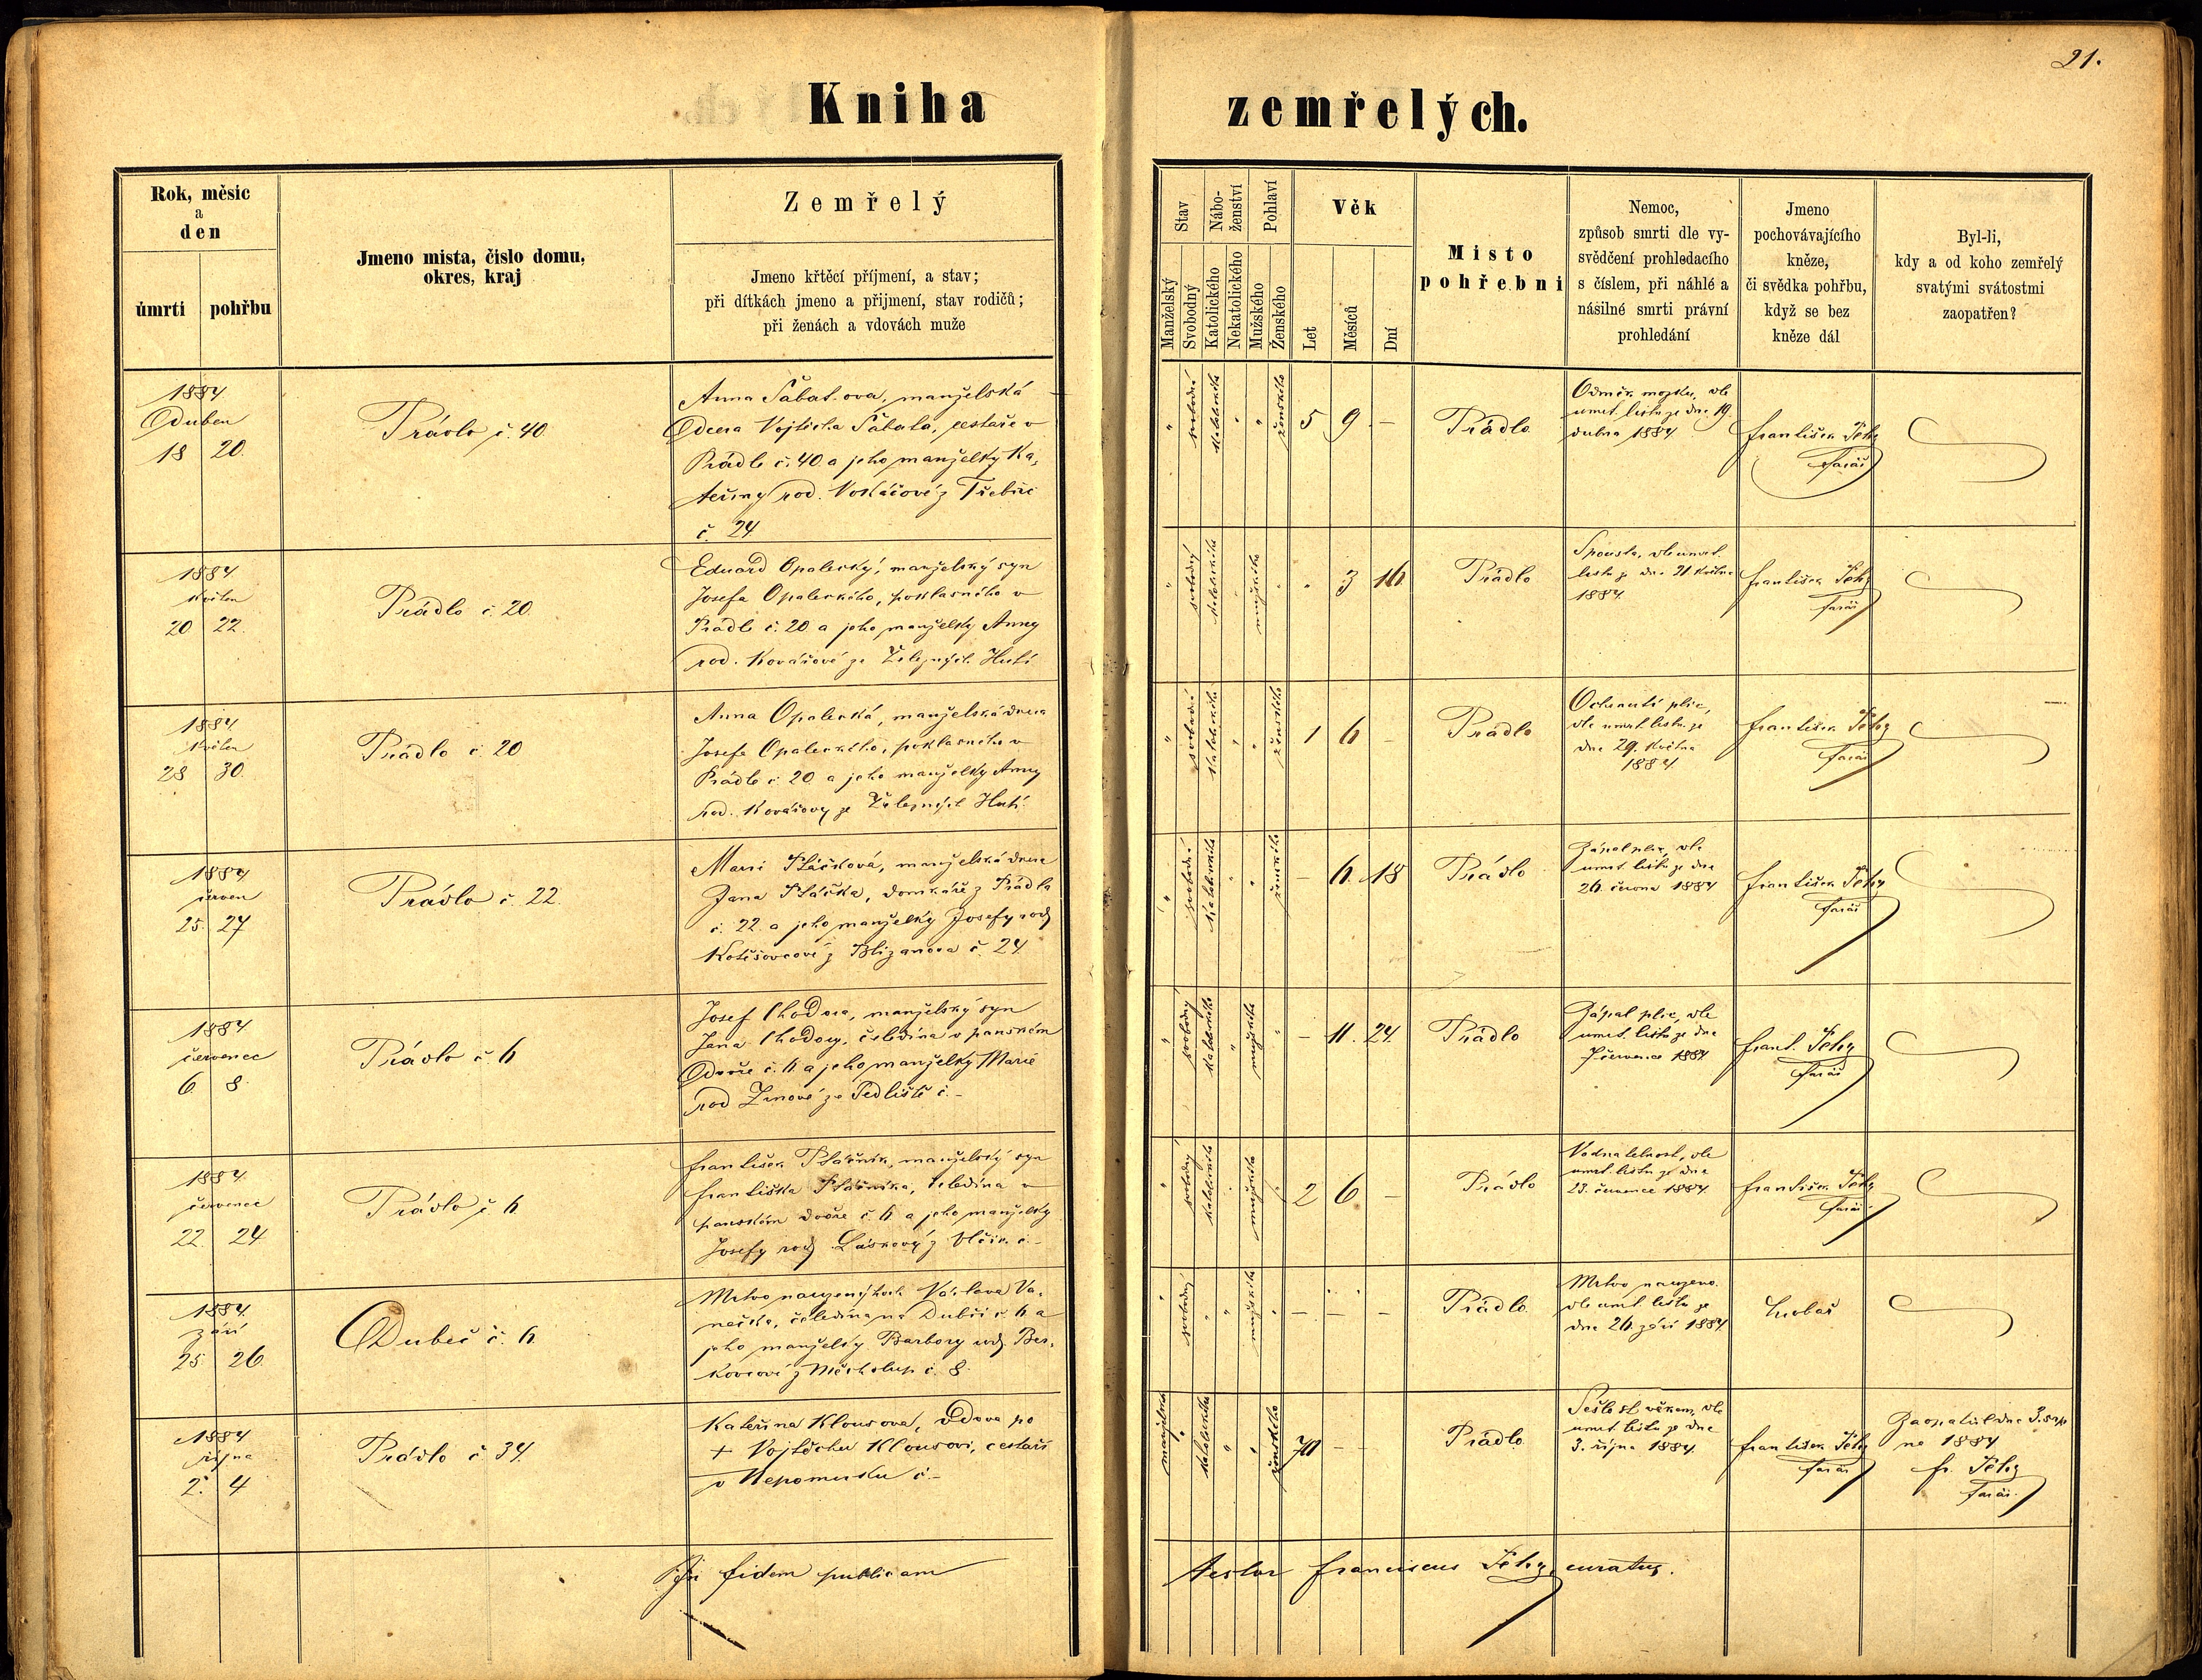 21.
Kniha zemřelých.
Rok, měsic
a
den
úmrti
pohřbu
Jmeno mista, čislo domu,
okres, kraj
Zemřelý
Jmeno křtěcí příjmení, a stav;
při dítkách jmeno a přijmení, stav rodičů;
při ženách a vdovách muže
Stav
Manželský
Svobodný
Nábo-
ženství
Katolického
Nekatolického
Pohlaví
Mužského
Ženského
Věk
Let
Měsíců
Dní
Misto
pohřebni
Nemoc,
způsob smrti dle vy-
svědčení prohledacího
s číslem, při náhlé a
násilné smrti právní
prohledání
Jmeno
pochovávajícího
kněze,
či svědka pohřbu,
když se bez
kněze dál
Byl-li,
kdy a od koho zemřelý
svatými svátostmi
zaopatřen?
1884
Duben
18 20.
Prádlo č. 40.
Anna Šabatova, manželská
Dcera Vojtěcha Šabata, cestáře v
Prádle č. 40. a jeho manželky Ka-
teřiny rod. Vokáčové z Třebčic
č. 24.
" svobodná katolického " " ženského 5 9 –
Prádlo
mozku, dle
umrt. listu ze dne 19.
dubna 1884
František
farář
1884
květen
20 22.
Prádlo č. 20.
Eduard Opalecký, manželský syn
Josefa Opaleckého, poklasného v
Prádle č. 20 a jeho manželky Anny
rod. Kovářové ze Železných Hutí
" svobodný katolického " mužského " " 3 16
Prádlo
dle umrt.
listu z dne 21. května
1884.
František
farář
1884
květen
28 30.
Prádlo č. 20
Anna Opalecká, manželská dcera
Josefa Opaleckého, poklasného v
Prádle č. 20 a jeho manželky Anny
rod. Kovářovy ze Železných Hutí.
" svobodná katolického " " ženského 1 6 –
Prádlo
Ochrnutí plic,
dle umrt. listu ze
dne 29. května
1884.
František
farář
1884
červen
25. 27
Prádlo č. 22.
Marie Ptáčková, manželská dcera
Jana Ptáčka, domkáře z Prádla
č. 22. a jeho manželky Josefy rod.
z Blizanova č. 24.
" svobodná katolického " " ženského – 6. 18
Prádlo
Zápal plic, dle
umrt. listu ze dne
26. června 1884
František
farář
1884
červenec
6. 8.
Prádlo č. 6
Josef Chodora, manželský syn
Jana Chodory, čeledína v panském
Dvoře č. 6 a jeho manželky Marie
rod ze Sedliště č. –
" svobodný katolického " mužského " – 11. 24.
Prádlo
Zápal plic, dle
umrt. listu ze dne
7 července 1884.
Frant.
farář
1884
červenec
22. 24
Prádlo č. 6
František Ptáčník, manželský syn
Františka Ptáčníka, čeledína v
panském dvoře č. 6 a jeho manželky
Josefy rod. Láskový z Vlčic č. –
" svobodný katolického " mužského " 2 6 –
Prádlo
Vodnatelnost, dle
umrt. listu ze dne
23. července 1884.
František
farář
1884.
září
25. 26.
Dubeč č. 6.
Mrtvo narozený hoch Václava Va-
nečka, čeledína na Dubči č. 6 a
jeho manželky Barbory rod. Ber-
kovcové z Měcholup č. 8.
" svobodný " " mužského " – – –
Prádlo
Mrtvo narozeno.
dle umrt. listu ze
dne 26. září 1884.
1884
října
2. 4
Prádlo č 34.
Kateřina Klousova, vdova po
+ Vojtěchu Klousovi, cestáři
v Nepomuku č. –
manželka " katolického " " ženského 70 – –
Prádlo
Sešlost věkem, dle
umrt. listu ze dne
3. října 1884.
František
farář
Zaopatřil dne 3. srp
na 1884
fr.
farář.
fidem publicam
testor Franciscus curatus.